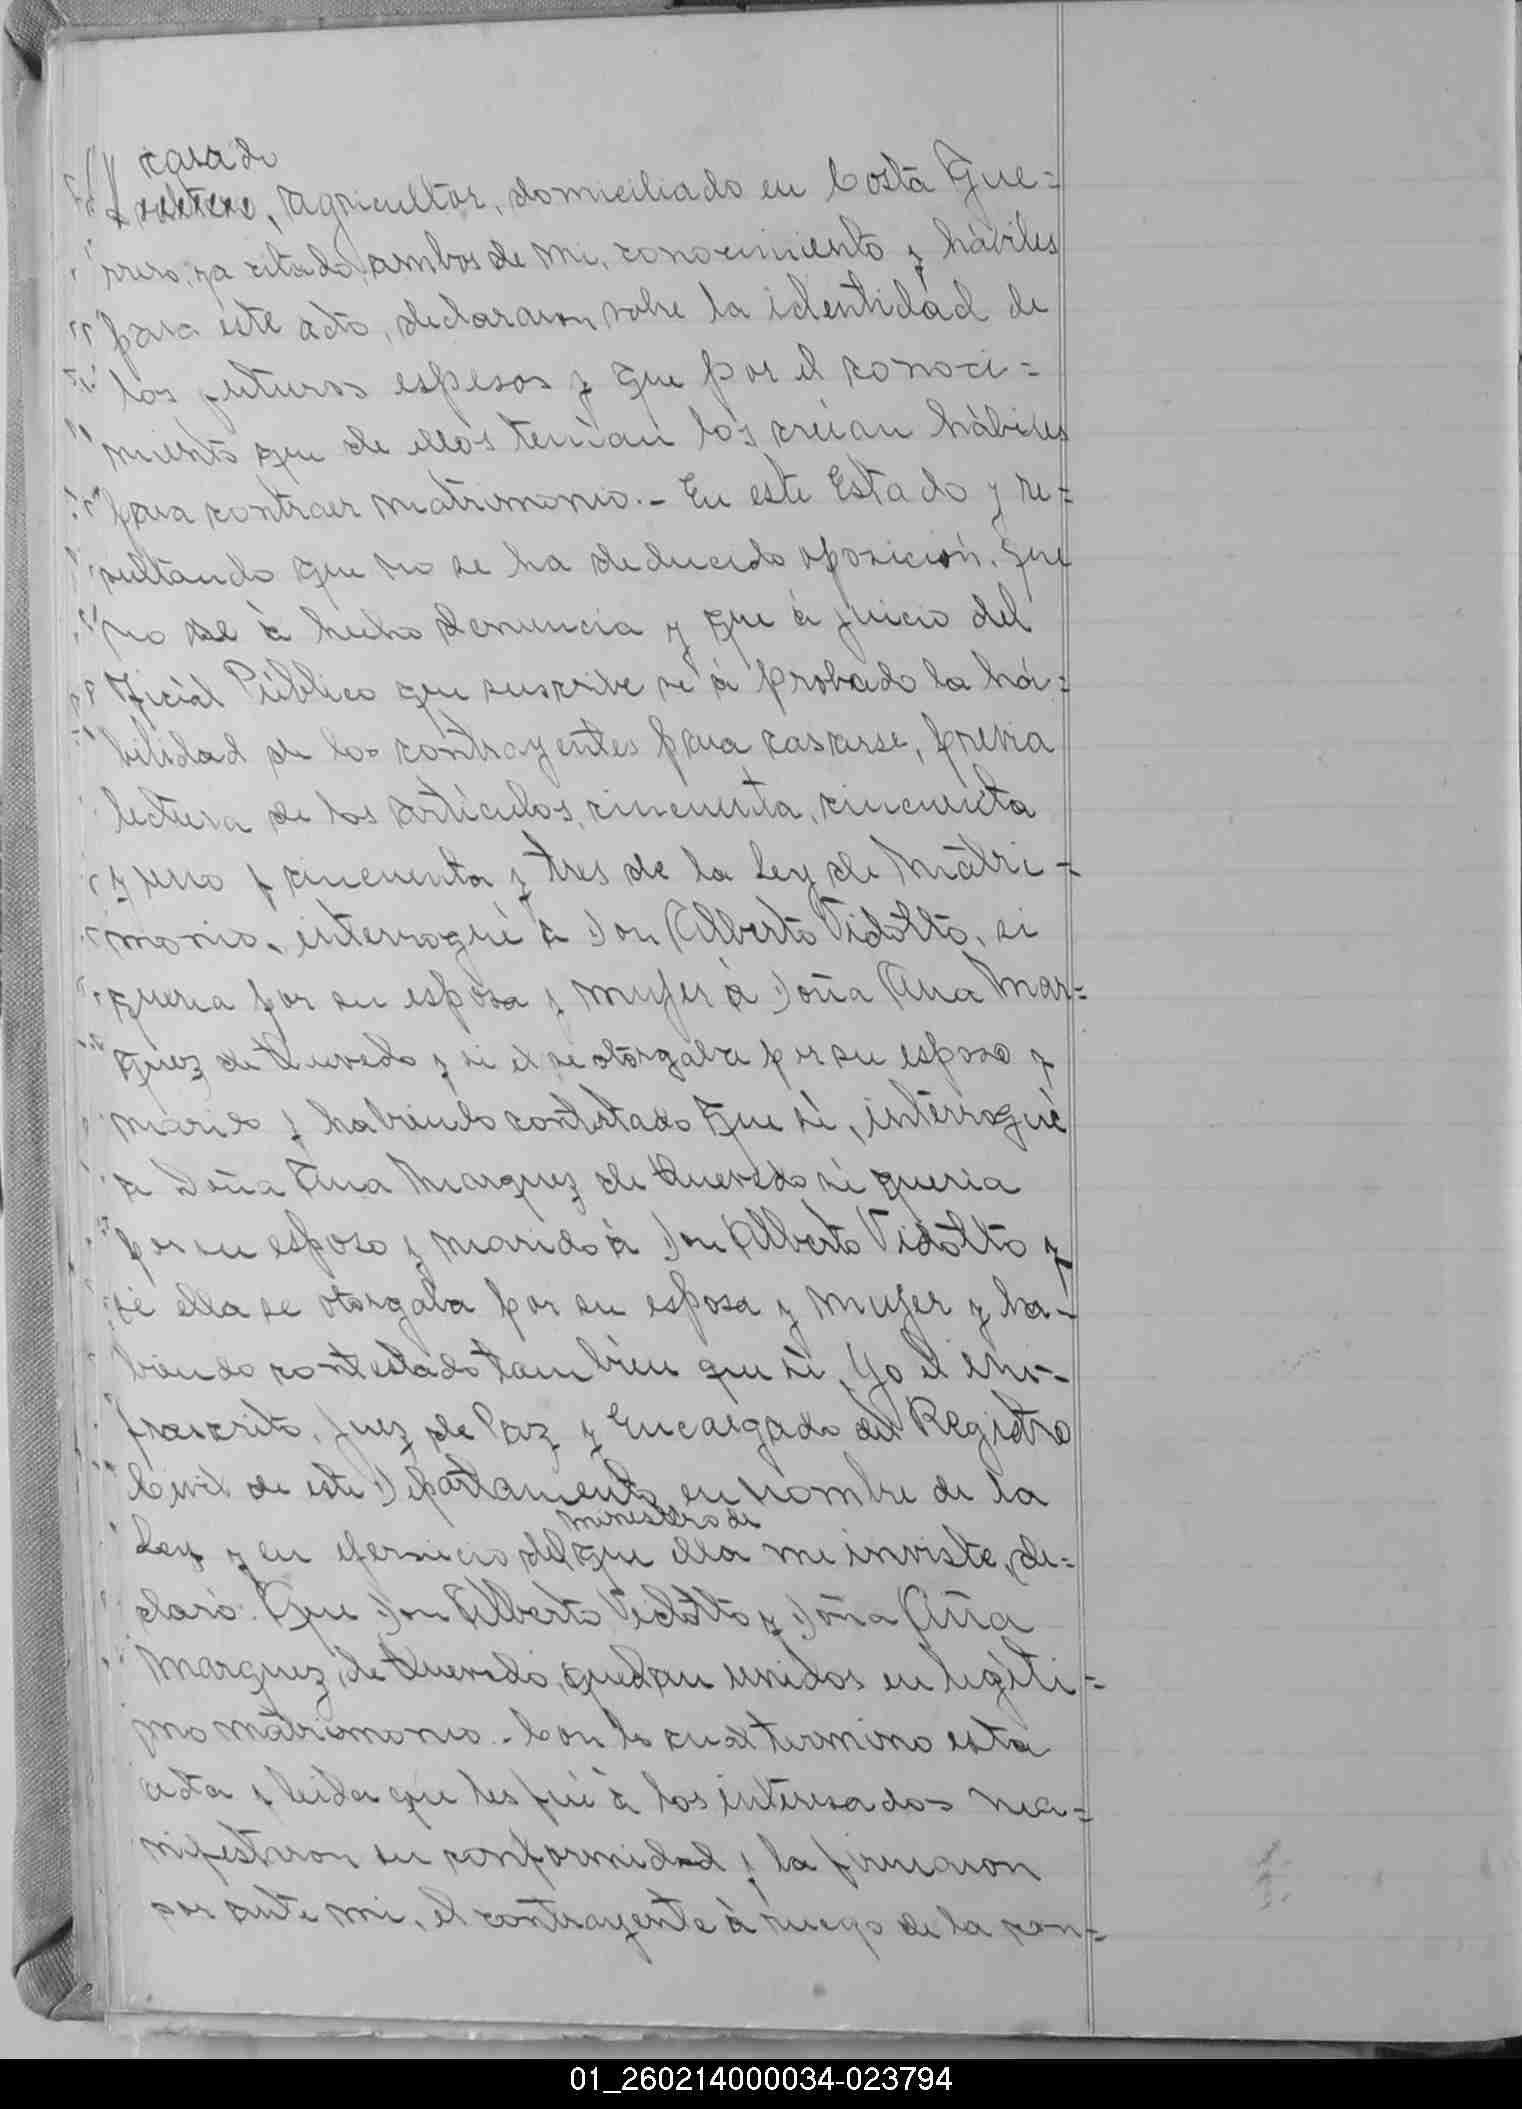 casado
soltero, agricultor, domiciliado en Costa Gue=
rrero, ya citado, ambos de mi, conocimiento y hábiles
para este acto, declararon sobre la identidad de
los futuros esposos y que por el conoci=
miento que de ellos tenian los creian hábiles
para contraer matrimonio.- En este Estado y re=
sultando que no se ha deducido oposición, que
no se á hecho denuncia y que á juicio del
Oficial Público que suscribe se á probado la há=
bilidad de los contrayentes para casarse, previa
lectura de los artículos, cincuenta, cincuenta
y uno y cincuenta y tres de la Ley de Matri=
monio, interrogué á Don Alberto Vidotto, si
queria por su esposa y mujer á Doña Ana Mar=
quez de Quevedo y si el se otorgaba por su esposo y
marido y habiendo contestado que si, interrogué
a Doña Ana Marquez de Quevedo si queria
por su esposo y marido á Don Alberto Vidotto y
si ella se otorgaba por su esposa y mujer y ha-
biendo contestado tambien que si, Yo el in-
frascrito, Juez de Paz y Encargado del Registro
Civil de este Departamento en nombre de la
ministerio de
Ley y en ejersicio del que ella me inviste, de=
claró: Que Don Alberto Vidotto y Doña Ana
Marquez de Quevedo, quedan unidos en legíti=
mo matrimonio.- Con lo cual termino esta
acta y leida que les fué á los interesados ma=
nifestaron su conformidad y la firmaron
por ante mi, el contrayente á ruego de la con=
01_260214000034-023794